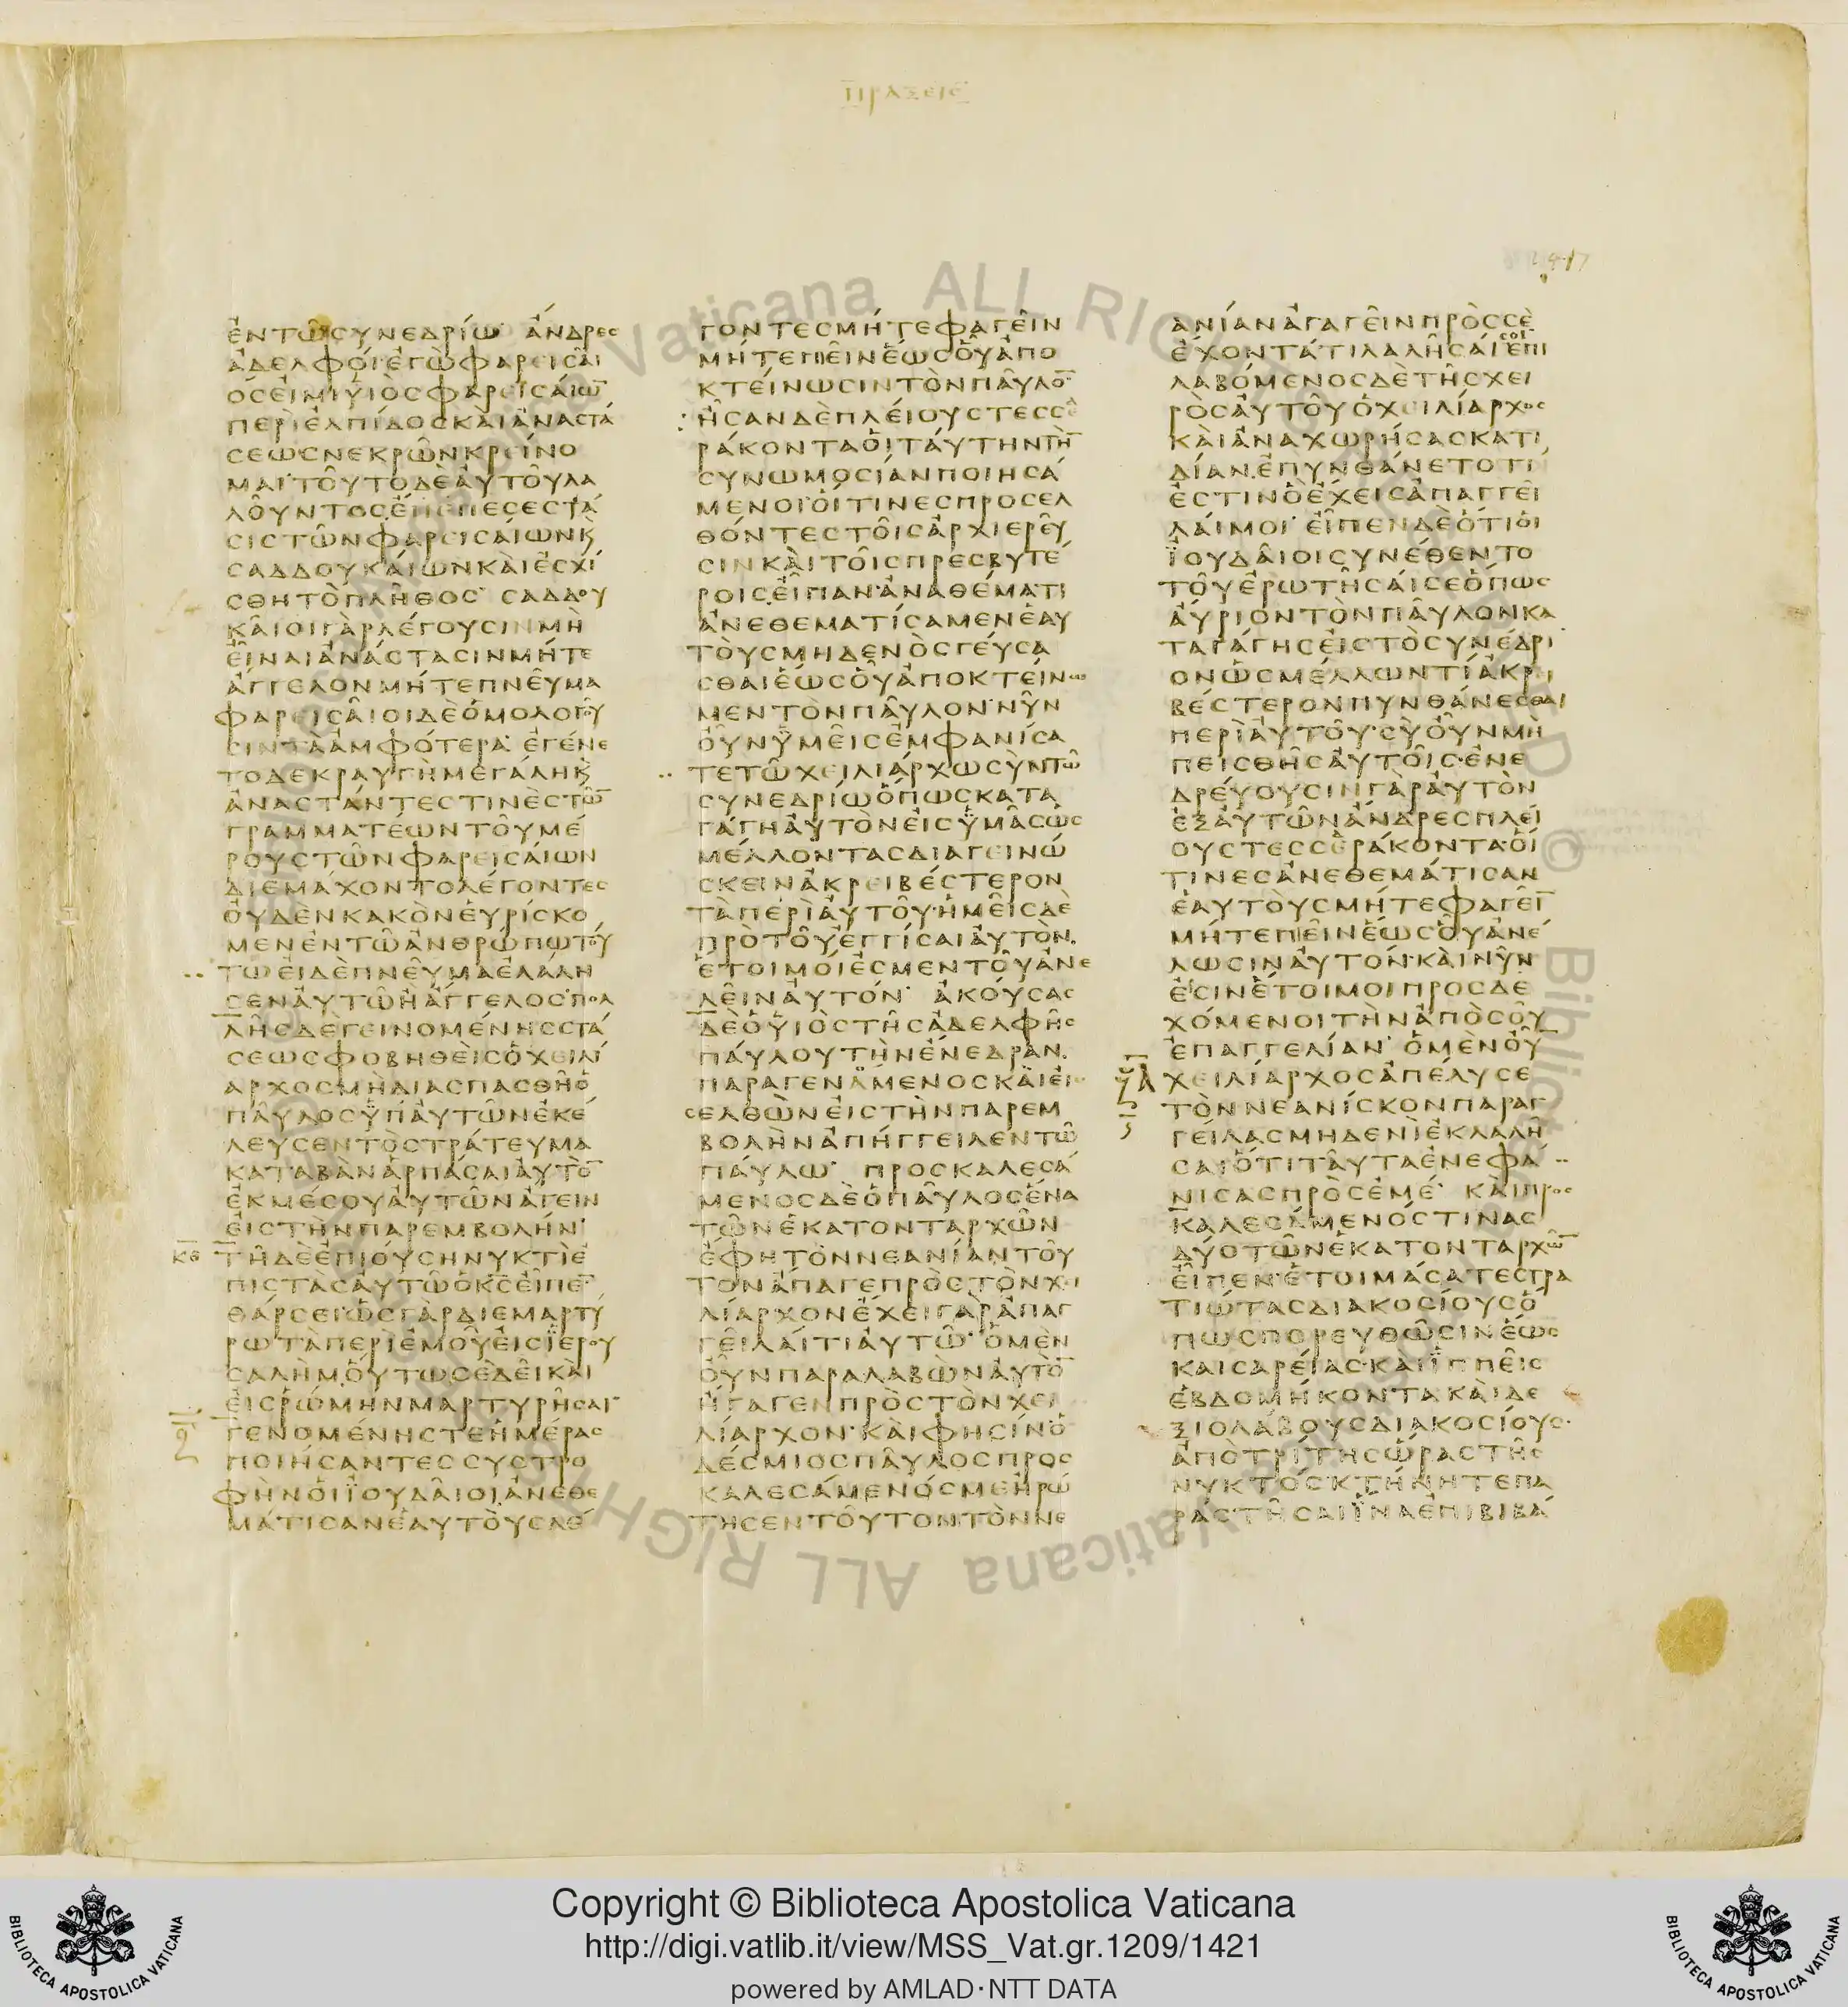 ΠΡΑΞΕΙΣ
1417
ἐν τῷ συνεδρίῳ· ἄνδρες
ἀδελφοί ἐγὼ φαρεισαῖ
ός εἰμι υἱὸς φαρεισαίω̅
περὶ ἐλπίδος καὶ ἀναστά
σεως νεκρῶν κρείνο
μαι· τοῦτο δὲ αὐτοῦ λα
λοῦντος ἐπέπεσε στά
σις τῶν φαρεισαίων κ̀
σαδδουκαίων καὶ ἐσχί
σθη τὸ πλῆθος· σαδδου
καῖοι γὰρ λέγουσιν μὴ
εἶναι ἀνάστασιν μήτε
ἄγγελον μήτε πνεῦμα
φαρεισαῖοι δὲ ὁμολογοῦ
σιν τὰ ἀμφότερα· ἐγένε
το δὲ κραυγὴ μεγάλη κ̀
ἀναστάντες τινὲς τῶ̅
γραμματέων τοῦ μέ
ρους τῶν φαρεισαίων
διεμάχοντο λέγοντες
οὐδὲν κακὸν εὑρίσκο
μεν ἐν τῷ ἀνθρώπῳ τού
τῳ εἰ δὲ πνεῦμα ἐλάλη
σεν αὐτῷ ἢ ἄγγελος· πολ
λῆς δὲ γεινομένης στά
σεως φοβηθεὶς ὁ χειλί
αρχος μὴ διασπασθῇ ὁ
παῦλος ὑπ αὐτῶν ἐκέ
λευσεν τὸ στράτευμα
καταβὰν ἁρπάσαι αὐτὸ̅
ἐκ μέσου αὐτῶν ἄγειν
εἰς τὴν παρεμβολήν·
κ̅δ̅ τῇ δὲ ἐπιούσῃ νυκτὶ ἐ
πιστὰς αὐτῷ ὁ κ̅ς̅ εἶπε̅
θάρσει ὡς γὰρ διεμαρτύ
ρω τὰ περὶ ἐμοῦ εἰς ϊερου
σαλὴμ οὕτω σε δεῖ καὶ
εἰς ῥώμην μαρτυρῆσαι·
γενομένης τε ἡμέρας
ποιήσαντες συστρο
φὴν οἱ ϊουδαῖοι ἀνεθε
μάτισαν ἑαυτοὺς λέ
γοντες μήτε φαγεῖν
μήτε πιεῖν ἕως οὗ ἀπο
κτείνωσιν τὸν παῦλο̅·
ἦσαν δὲ πλείους τεσσε
ράκοντα οἱ ταύτην τὴ̅
συνωμοσίαν ποιησά
μενοι· οἵτινες προσελ
θόντες τοῖς ἀρχιερεῦ
σιν καὶ τοῖς πρεσβυτέ
ροις εἶπαν· ἀναθέματι
ἀνεθεματίσαμεν ἑαυ
τοὺς μηδενὸς γεύσα
σθαι ἕως οὗ ἀποκτείνω
μεν τὸν παῦλον· νῦν
οὖν ὑμεῖς ἐμφανίσα
τε τῷ χειλιάρχῳ σὺν τῷ
συνεδρίῳ ὅπως κατα
γάγῃ αὐτὸν εἰς ὑμᾶς ὡς
μέλλοντας διαγεινώ
σκειν ἀκρειβέστερον
τὰ περὶ αὐτοῦ· ἡμεῖς δὲ
πρὸ τοῦ ἐγγίσαι αὐτὸν
ἕτοιμοί ἐσμεν τοῦ ἀνε
λεῖν αὐτόν· ἀκούσας
δὲ ὁ υἱὸς τῆς ἀδελφῆς
παύλου τὴν ἐνέδραν
παραγενάμενος καὶ εἰ
σελθὼν εἰς τὴν παρεμ
βολὴν ἀπήγγειλεν τῷ
παύλῳ· προσκαλεσά
μενος δὲ ὁ παῦλος ἕνα
τῶν ἑκατονταρχῶν
ἔφη τὸν νεανίαν τοῦ
τον ἄπαγε πρὸς τὸν χι
λίαρχον ἔχει γὰρ ἀπαγ
γεῖλαί τι αὐτῷ· ὁ μὲν
οὖν παραλαβὼν αὐτὸ̅
ἤγαγεν πρὸς τὸν χει
λίαρχον· καὶ φησίν ὁ
δέσμιος παῦλος προς
καλεσάμενός με ἠρώ
τησεν τοῦτον τὸν νε
ανίαν ἀγαγεῖν πρὸς σὲ
ἔχοντά τι λαλῆσαί σοι· ἐπι
λαβόμενος δὲ τῆς χει
ρὸς αὐτοῦ ὁ χειλίαρχος
καὶ ἀναχωρήσας κατ ι
δίαν ἐπυνθάνετο τί
ἐστιν ὃ ἔχεις ἀπαγγεῖ
λαί μοι· εἶπεν δὲ ὅτι οἱ
ϊουδαῖοι συνέθεντο
τοῦ ἐρωτῆσαί σε ὅπως
αὔριον τὸν παῦλον κα
ταγάγῃς εἰς τὸ συνέδρι
ον ὡς μέλλων τι ἀκρι
βέστερον πυνθάνεσθαι
περὶ αὐτοῦ· σὺ οὖν μὴ
πεισθῇς αὐτοῖς· ἐνε
δρεύουσιν γὰρ αὐτὸν
ἐξ αὐτῶν ἄνδρες πλεί
ους τεσσεράκοντα· οἵ
τινες ἀνεθεμάτισαν
ἑαυτοὺς μήτε φαγεῖ̅
μήτε πιεῖν ἕως οὗ ἀνέ
λωσιν αὐτόν· καὶ νῦν
εἰσιν ἕτοιμοι προσδε
χόμενοι τὴν ἀπὸ σοῦ
ἐπαγγελίαν· ὁ μὲν οὖ̅
χειλίαρχος ἀπέλυσε
τὸν νεανίσκον παραγ
γείλας μηδενὶ ἐκλαλῆ
σαι ὅτι ταῦτα ἐνεφά
νισας πρὸς ἐμέ· καὶ προς
καλεσάμενός τινας
δύο τῶν ἑκατονταρχῶ̅
εἶπεν· ἑτοιμάσατε στρα
τιώτας διακοσίους ὅ
πως πορευθῶσιν ἕως
καισαρείας· καὶ ἱππεῖς
ἑβδομήκοντα καὶ δε
ξιολάβους διακοσίους·
ἀπὸ τρίτης ὥρας τῆς
νυκτός· κτήνη τε πα
ραστῆσαι ἵνα ἐπιβιβά
Copyright © Biblioteca Apostolica Vaticana
http://digi.vatlib.it/view/MSS_Vat.gr.1209/1421
powered by AMLAD·NTT DATA
BIBLIOTECA APOSTOLICA VATICANA
BIBLIOTECA APOSTOLICA VATICANA